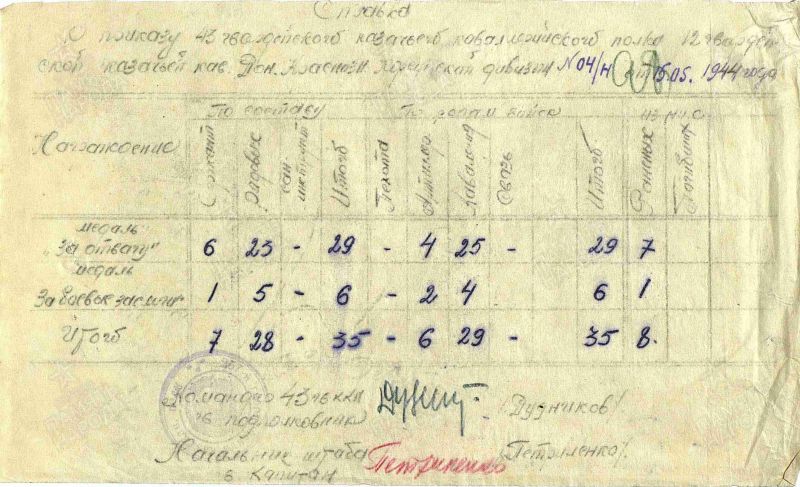 Справка
О приказу 43 гвардейского казачьего кавалерийского полка 12 гвардей-
ской казачьей кав. Дон. Краснозн. Корсунской дивизии № 04/н от 15.05. 1944 года
Награждение По составу По родам войск из них
Сержант Рядовых сан. инструкт Итого Пехота Артилер Кавалер Связь Итого Раненых Погибших
медаль
„За отвагу" 6 23 - 29 - 4 25 - 29 7
медаль
За боевые заслуги 1 5 - 6 - 2 4 6 1
Итого 7 28 - 35 - 6 29 - 35 8.
Командир 43 гв ккп
гв подполковник /Дудников/
Начальник штаба
гв капитан Петриленко /Петриленко/